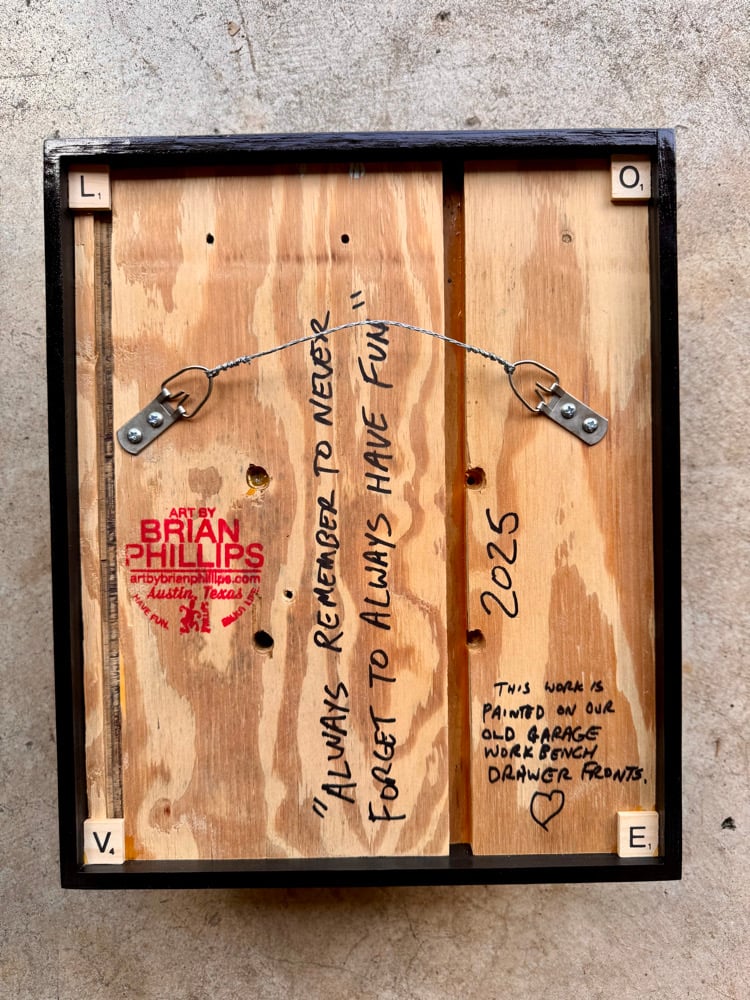 L1
O1
"ALWAYS REMEMBER TO NEVER
FORGET TO ALWAYS HAVE FUN"
2025
ART BY
BRIAN
PHILLIPS
artbybrianphillips.com
Austin, Texas
HAVE FUN.
THIS WORK IS
PAINTED ON OUR
OLD GARAGE
WORKBENCH
DRAWER FRONTS.
V4
E1